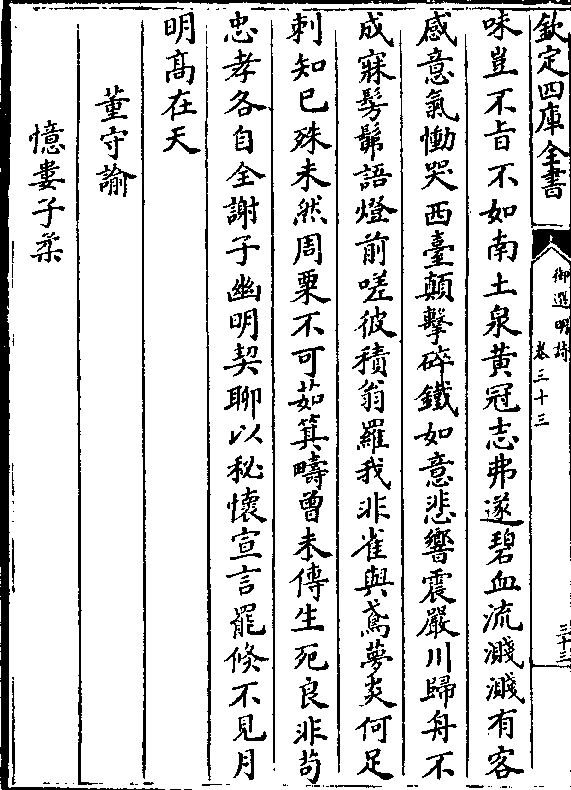 欽定四庫全書
御選明詩
卷三十三
三十三
味豈不旨不如南土泉黄冠志弗遂碧血流濺濺有客
感意氣慟哭西臺顛擊碎鐵如意悲響震嚴川歸舟不
成寐髣髴語燈前嗟彼積翁羅我非雀與鳶夢炎何足
刺知已殊未然周粟不可茹箕疇曾未傳生死良非苟
忠孝各自全謝子幽明契聊以秘懷宣言罷倐不見月
明髙在天
董守諭
憶婁子柔